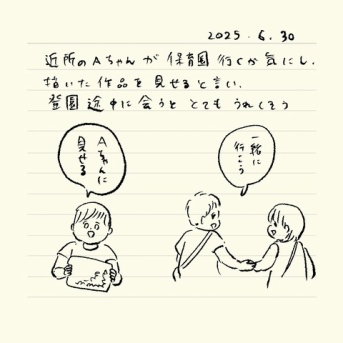 2025.6.30
近所のAちゃんが保育園行くか気にし、
描いた作品を見せると言い、
登園途中に会うととてもうれしそう
Aちゃんに
見せる
一緒に
行こう